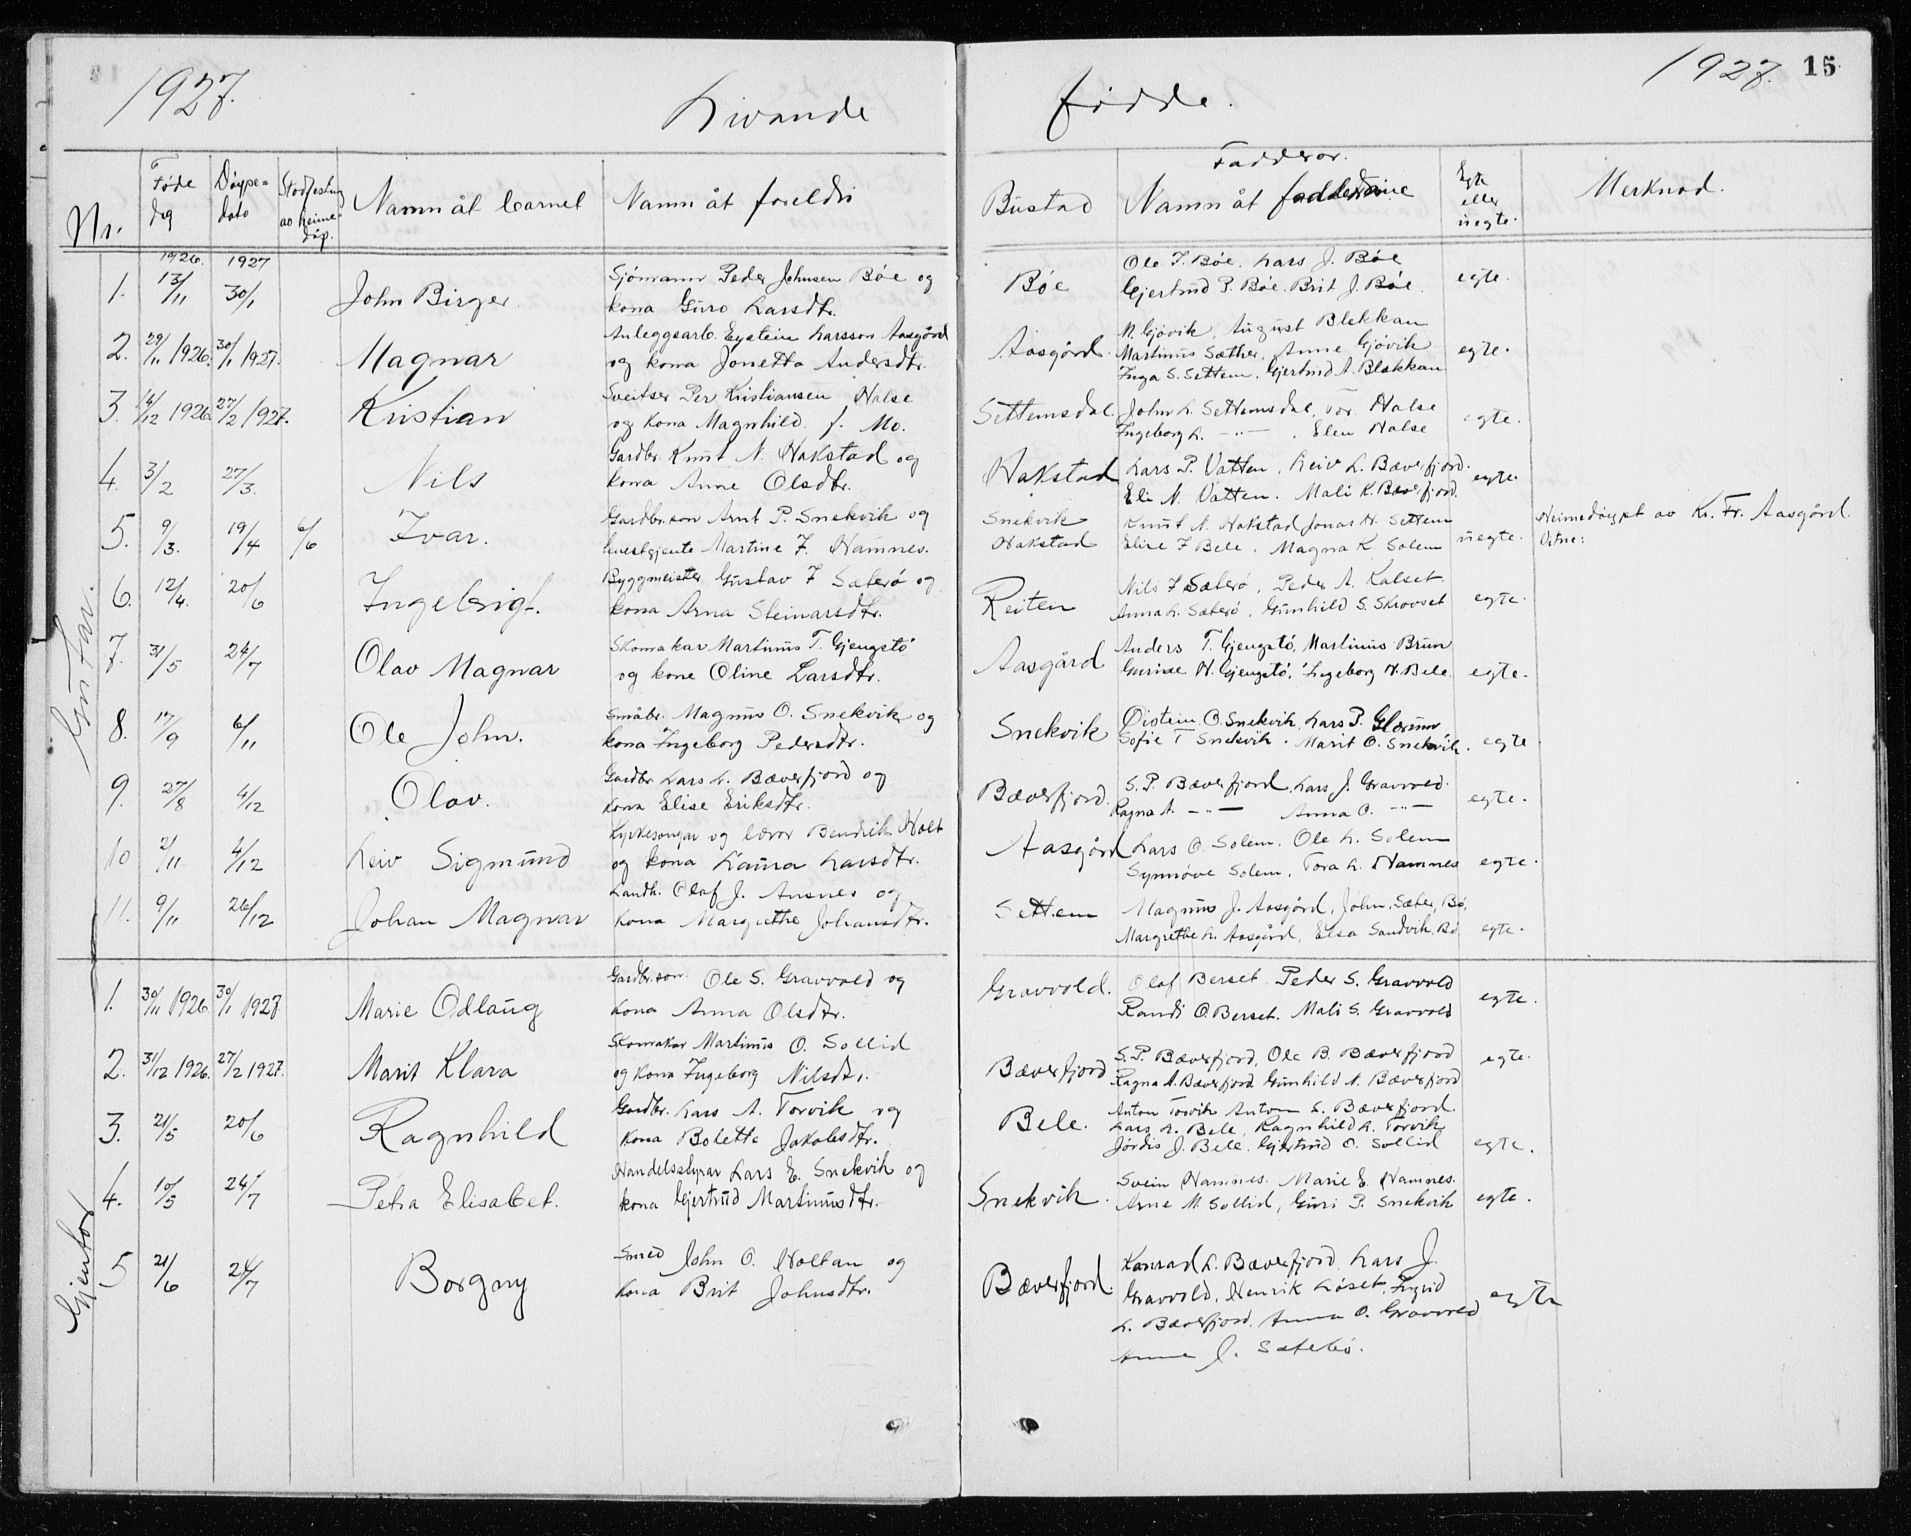 1927.
Livande
fødde.
1927. 15
Nr.
Føde dag
Døype=dato
Stadfesting av heimedåp.
Namn åt barnet
Namn åt foreldri
Bustad
Fadderar.
Namn åt
Egte eller uegte.
Merknad.
Gutar.
1. 1926. 13/11 1927 30/1 John Birger. Sjömann Peder Johnsen Bøe og
kona Guro Larsdtr.
Bøe Ole J. Bøe. Lars J. Bøe
Gjertrud P. Bøe. Brit J. Bøe. egte.
2. 29/11 1926. 30/1 1927. Magnar Anleggsarb. Eystein Larsson Aasgård
og kona Jonetta Andersdtr.
Aasgård. N. Gjövik, August Blekkan
Martinus Sæther, Anne Gjövik
Inga S. Settem. Gjertrud A. Blekkan egte.
3. 14/12 1926 27/2 1927. Kristian Sveitser Per Kristiansen Halse
og kona Magnhild f. Mo.
Settemsdal. John L. Settemsdal, Tor. Halse
Ingeborg L. —"— . Elen Halse egte.
4. 3/2 27/3. Nils Gardbr. Knut N. Hakstad og
kona Anne Olsdtr.
Hakstad Lars P. Vatten, Leiv L. Bæverfjord.
Eli N. Vatten. Mali K. Bæverfjord. egte.
5. 9/3. 19/4 6/6 Ivar. Gardbr.son Arnt P. Snekvik og
Martine F. Hamnes.
Snekvik
Hakstad
Knut N. Hakstad, Jonas H. Settem
Elise F Bele. Magna K. Solem uegte. Heimedøypt av Kr. Fr. Aasgård.
Vitne:
6. 12/4. 20/6 Ingebrigt. Byggmeister Gustav F Sæterø og
kona Arna Steinarsdtr.
Reiten Nils F Sæterø, Peder A. Kalset.
Anna L. Sæterø, Gunhild S. Skrovset egte.
7. 31/5 24/7 Olav Magnar Skomakar Martinus T. Gjengstø
og kone Oline Larsdtr.
Aasgård Anders T. Gjengstø, Martinus Brun
Gurine H. Gjengstø, Ingeborg H. Bele. egte.
8. 17/9 6/11 Ole John. Småbr. Magnus O. Snekvik og
kona Ingeborg Pedersdtr.
Snekvik Øistein O. Snekvik, Lars P. Glærum
Sofie T Snekvik. Marit O. Snekvik. egte
9. 27/8 4/12 Olav. Gardbr. Lars L. Bæverfjord og
kona Elise Eriksdtr.
Bæverfjord. S. P. Bæverfjord, Lars J. Gravvold.
Ragna A. —"— Anna O. —"— egte.
10 2/11 4/12 Leiv Sigmund Kyrkjesongar og lærar Bendrik Holt
og kona Laura Larsdtr.
Aasgård Lars O. Solem. Ole L. Solem
Synnøve Solem, Tora L. Hamnes egte.
11. 9/11 26/12 Johan Magnar Landh. Olaf J. Ansnes og
kona Margrethe Johansdtr.
Settem Magnus J. Aasgård, John Sæter, Bø,
Margrethe L. Aasgård, Elsa Sandvik, Bø egte.
Gjentor
1. 30/11 1926. 30/1 1927 Marie Odlaug Gardbr.son Ole S. Gravvold og
kona Anna Olsdtr.
Gravvold. Olaf Berset. Peder S. Gravvold
Randi O. Berset. Mali S. Gravvold egte.
2. 31/12 1926. 27/2 1927. Marit Klara Skomakar Martinus O. Sollid
og kona Ingeborg Nilsdtr.
Bæverfjord S. P. Bæverfjord, Ole B. Bæverfjord
Ragna A. Bæverfjord Gunhild A. Bæverfjord egte.
3. 21/5 20/6 Ragnhild Gardbr. Lars A. Torvik og
kona Bolette Jakobsdtr.
Bele. Anton Torvik Anton L. Bæverfjord.
Lars L. Bele, Ragnhild L. Torvik
Jórdis J. Bele. Gjertrud O. Sollid egte.
4. 10/5 24/7 Petra Elisabet. Handelsstyrar Lars E. Snekvik og
kona Gjertrud Martinusdtr.
Snekvik. Svein Hamnes. Marie E. Hamnes.
Arne M. Sollid, Guri P. Snekvik egte.
5 21/6 24/7 Borgny Smed John O. Holtan og
kona Brit Johnsdtr.
Bæverfjord. Konrad L. Bæverfjord, Lars J.
Gravvold, Henrik Løset, Ingrid
L. Bæverfjord, Anna O. Gravvold
Anne J. egte